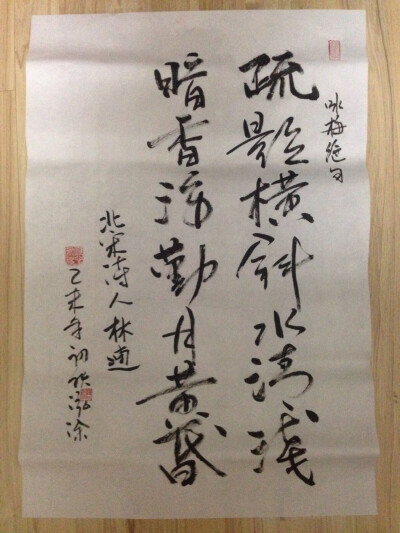 咏梅絕句
疏影橫斜水清淺
暗香浮動月黄昏
北宋诗人林逋
乙未年初